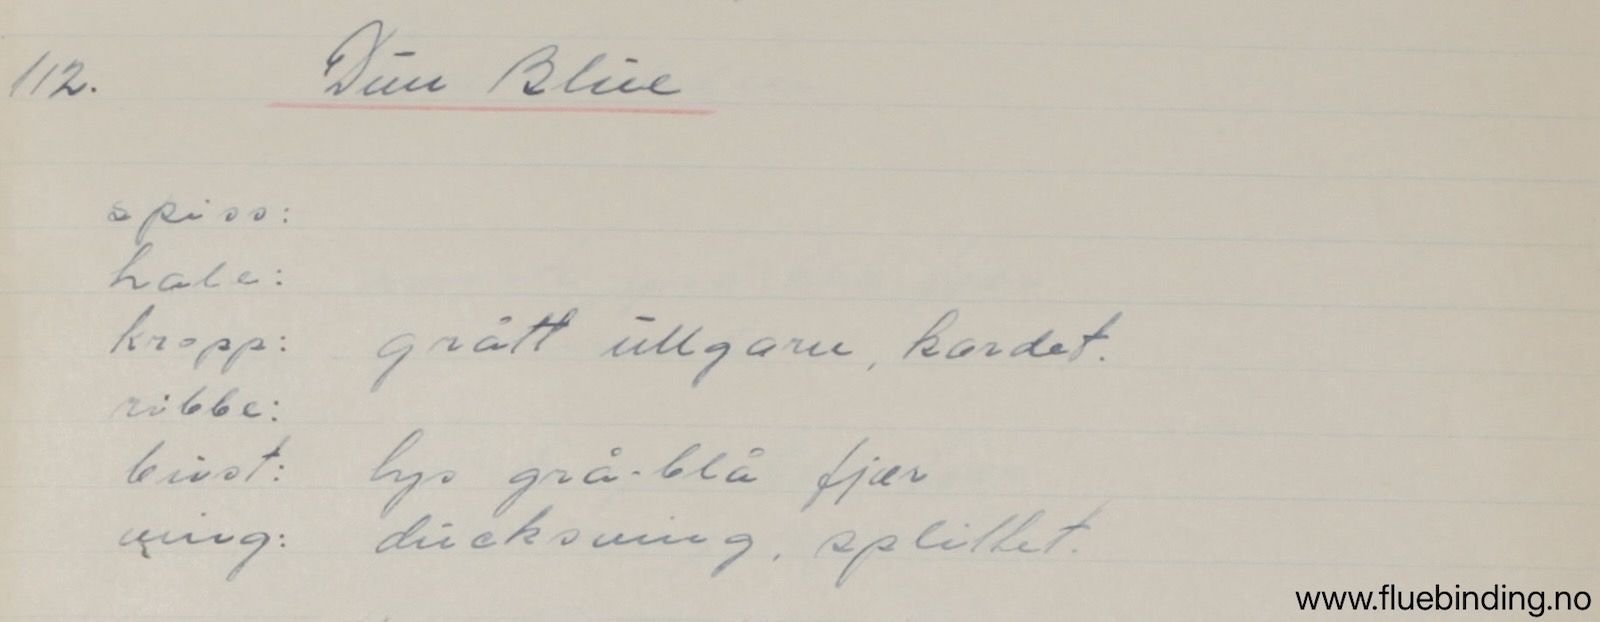 112. Dun Blue
spiss:
hale:
kropp: grått ullgarn, kardet.
ribbe:
brøst: lys grå-blå fjær
ving: ducksving, splittet.
www.fluebinding.no